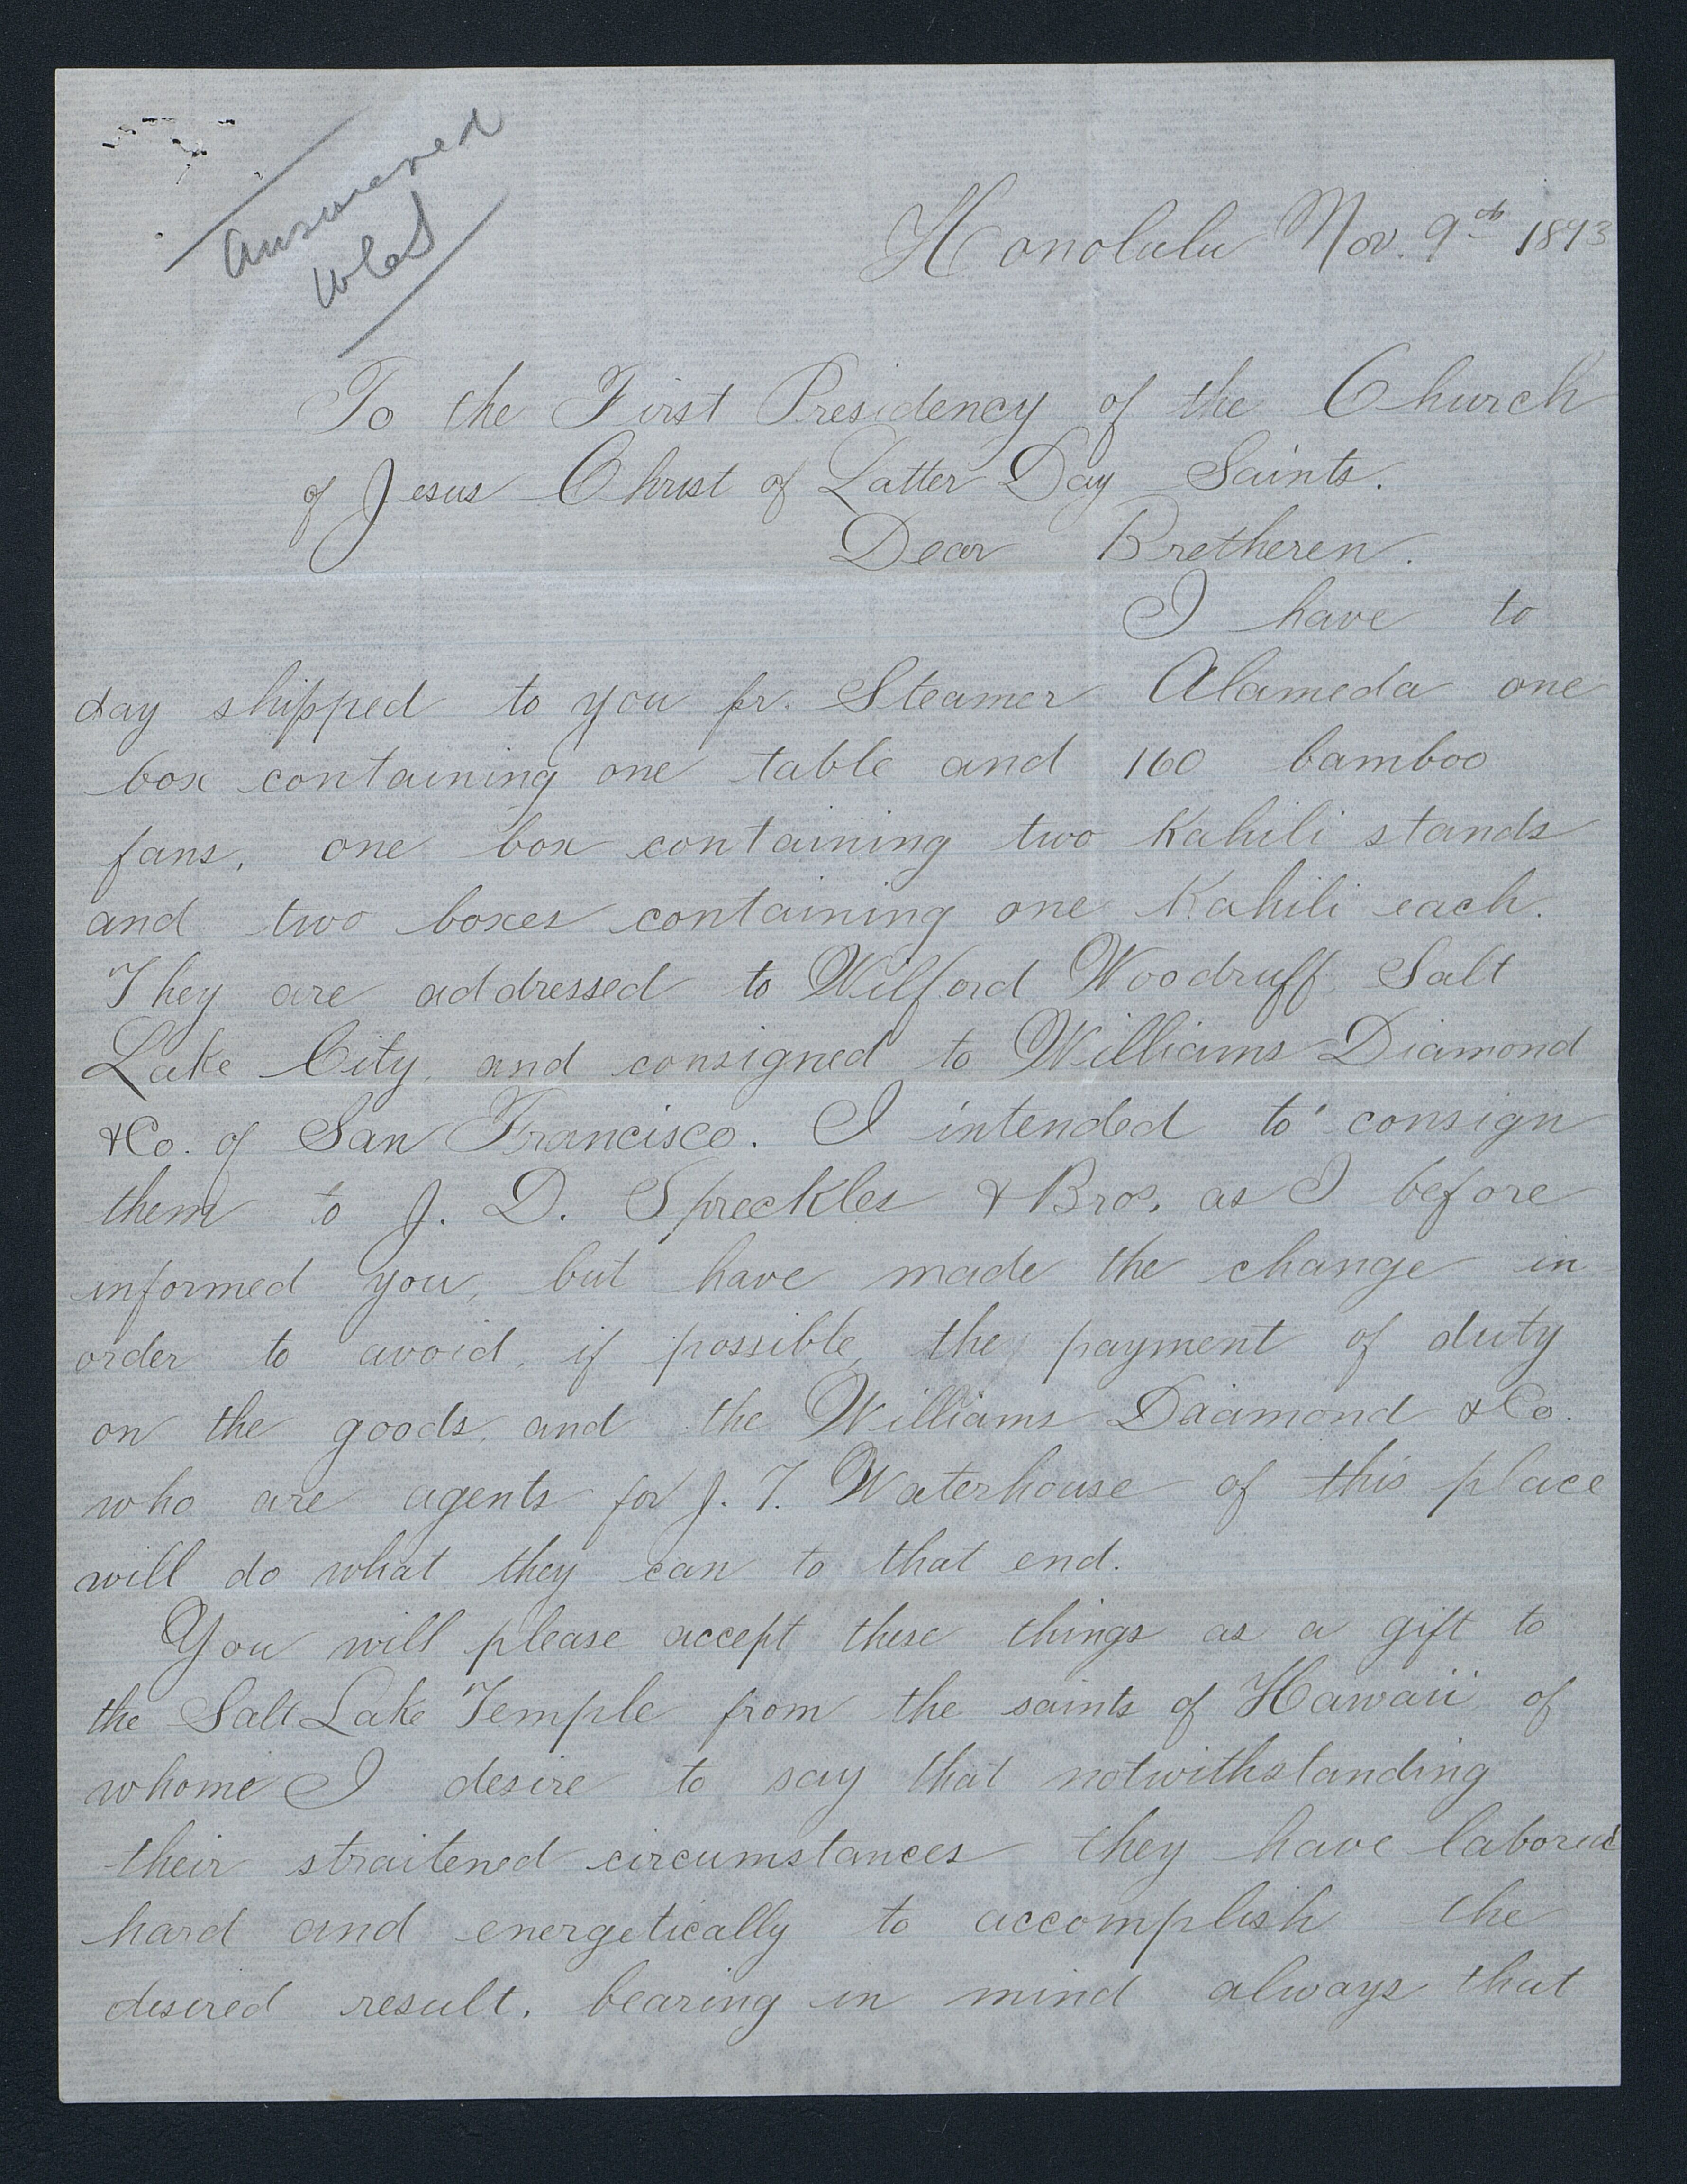 answered
Honolulu Nov. 9th 1893
To the First Presidency of the Church
of Jesus Christ of Latter Day Saints.
Dear Bretheren.
I have to
day shipped to you pr. Steamer Alameda one
box containing one table and 160 bamboo
fans, one box containing two Kahili stands
and two boxes containing one Kahili each.
They are addressed to Wilford Woodruff Salt
Lake City, and consigned to Williams Diamond
&Co. of San Francisco. I intended to consign
them to J. D. Spreckles & Bros, as I before
informed you, but have made the change in
order to avoid, if possible, the payment of duty
on the goods, and the Williams Daimond &Co.
who are agents for J. T. Waterhouse of this place
will do what they can to that end.
You will please accept these things as a gift to
the Salt Lake Temple from the saints of Hawaii, of
whome I desire to say that notwithstanding
their straitened circumstances they have labored
hard and energetically to accomplish the
desired result, bearing in mind always that